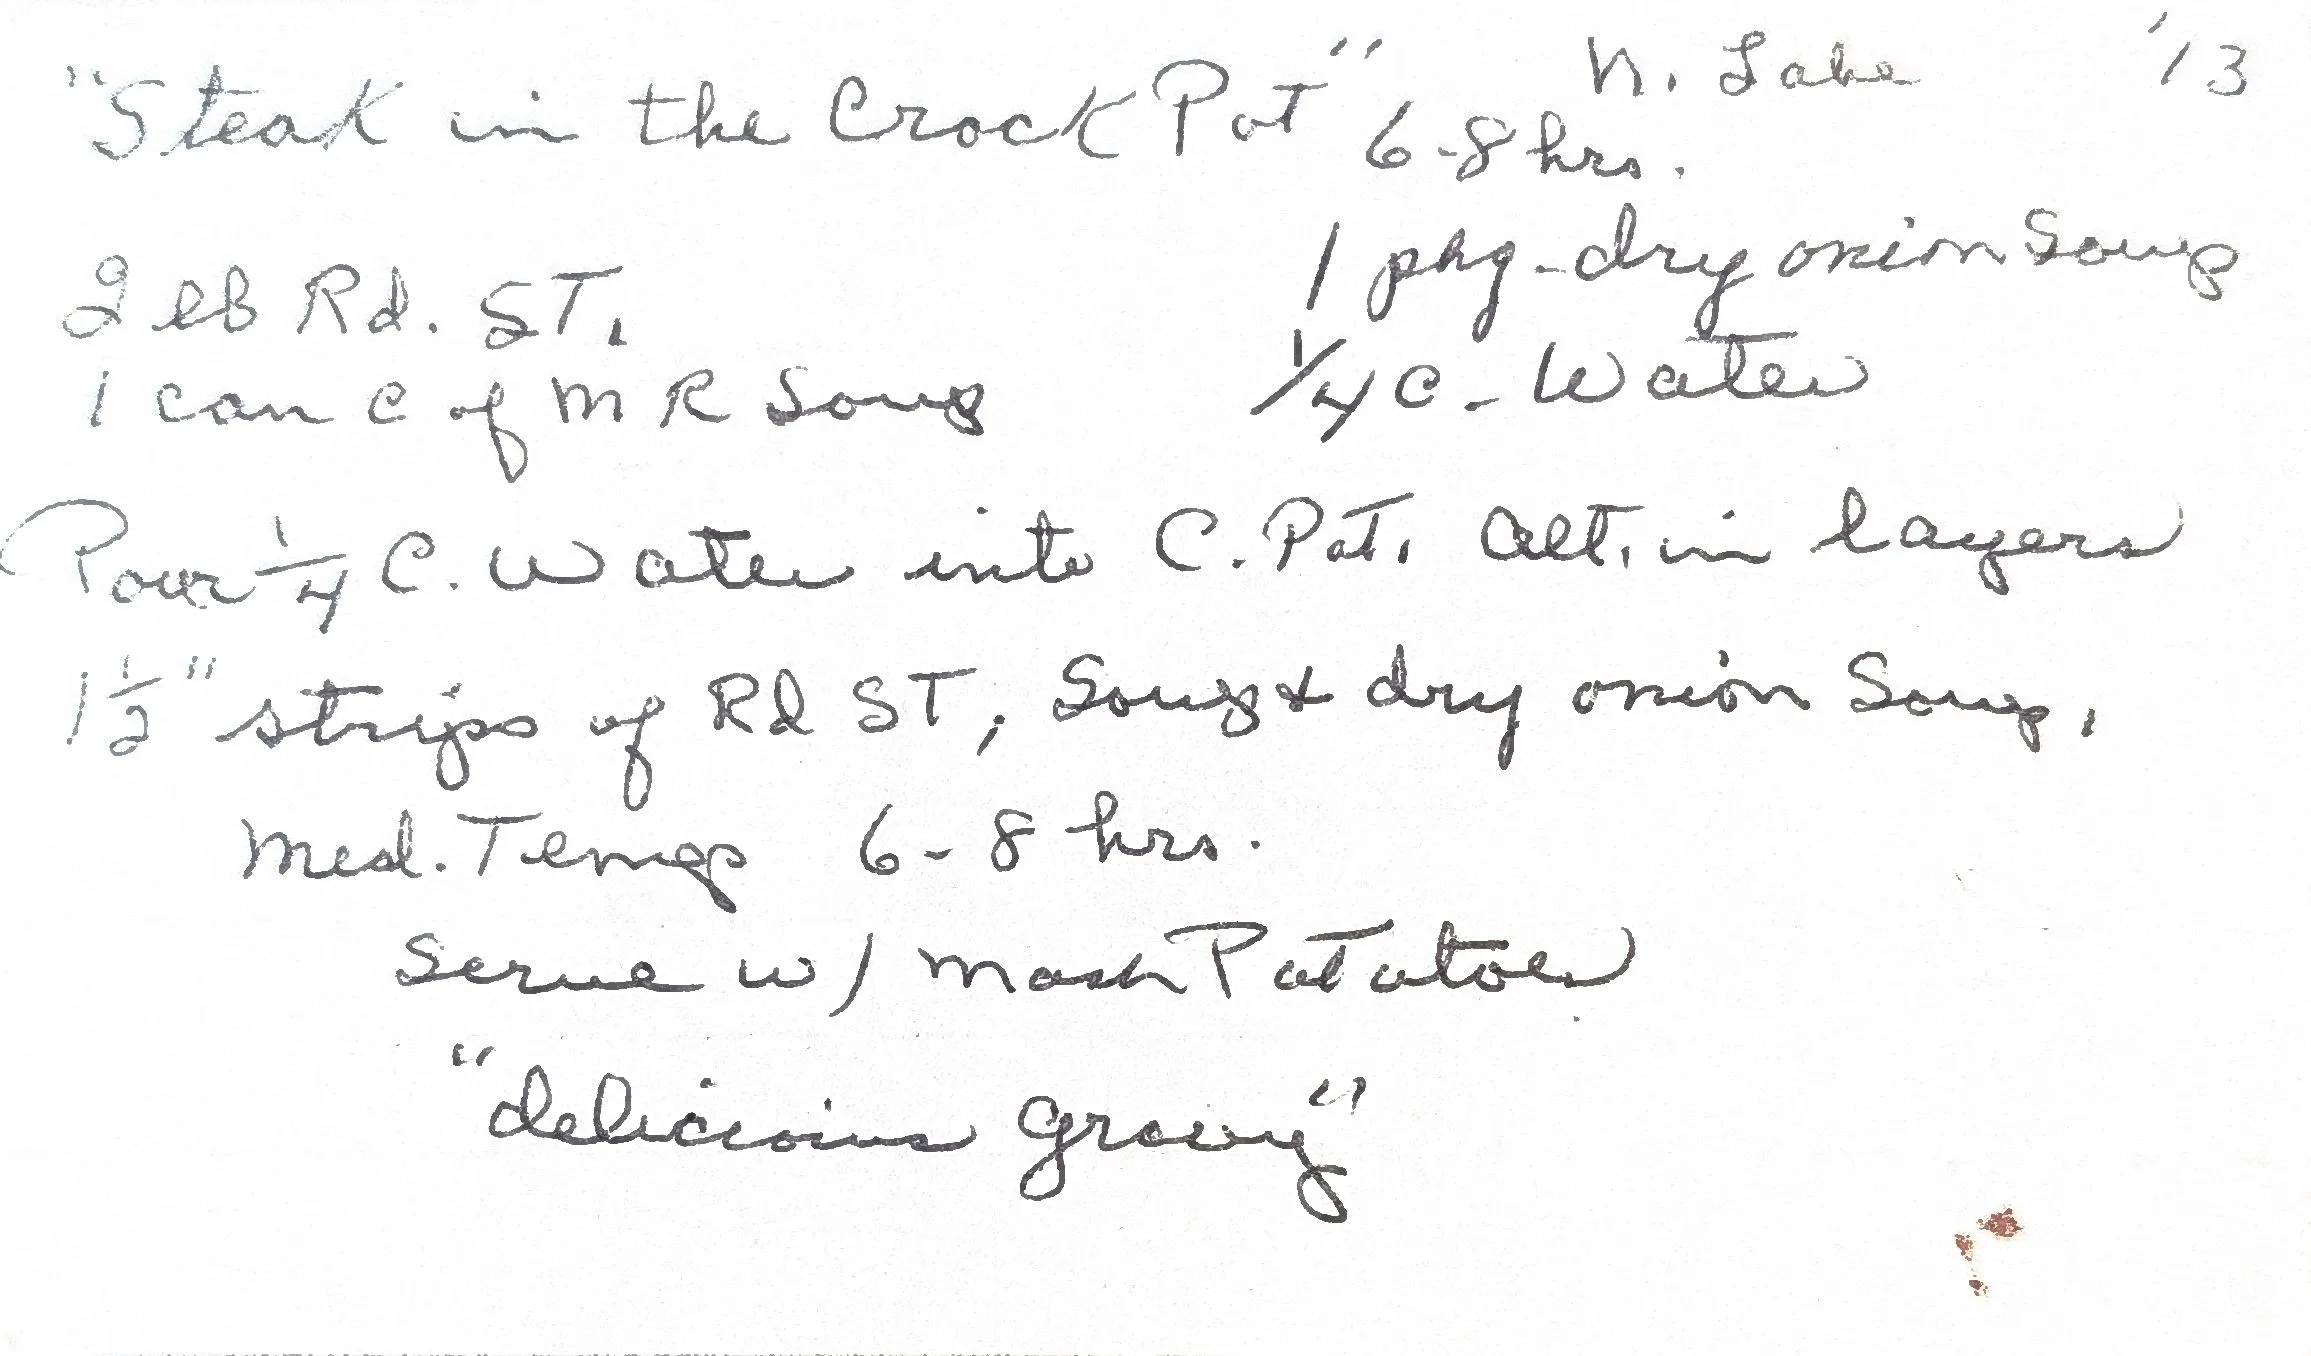 "Steak in the Crock Pot" N. Lake '13
6-8 hrs.
2 lb Rd. ST. 1 pkg - dry onion Soup
1 can C of M R Soup 1/4 C - Water
Pour 1/4 C. Water into C. Pot. Alt. in layers
1 1/2" strips of Rd ST, Soup & dry onion Soup.
Med. Temp 6-8 hrs.
Serve w/ Mash Potatoes
"delicious gravy"